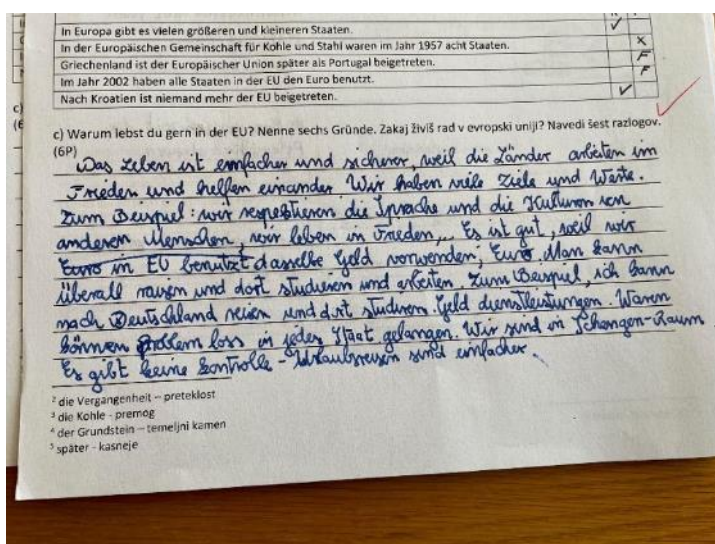 In Europa gibt es vielen größeren und kleineren Staaten. ✓
In der Europäischen Gemeinschaft für Kohle und Stahl waren im Jahr 1957 acht Staaten. X
Griechenland ist der Europäischer Union später als Portugal beigetreten. F
Im Jahr 2002 haben alle Staaten in der EU den Euro benutzt. F
Nach Kroatien ist niemand mehr der EU beigetreten. ✓
c) Warum lebst du gern in der EU? Nenne sechs Gründe. Zakaj živiš rad v evropski uniji? Navedi šest razlogov.
(6P)
Das Leben ist einfacher und sicherer, weil die Länder arbeiten im
Frieden und helfen einander. Wir haben viele Ziele und Werte.
Zum Beispiel: wir respektieren die Sprache und die Kulturen von
anderen Menschen, wir leben in Frieden,.. Es ist gut, weil wir
Euro in EU benutzt dasselbe Geld verwenden; Euro. Man kann
überall reisen und dort studieren und arbeiten. Zum Beispiel, ich kann
nach Deutschland reisen und dort studieren. Geld dienstleistungen. Waren
können problem loss in jeder Staat gelangen. Wir sind in Schengen-Raum
Es gibt keine kontrolle - Urlaubsreisen sind einfacher.
² die Vergangenheit – preteklost
³ die Kohle - premog
⁴ der Grundstein – temeljni kamen
⁵ später - kasneje